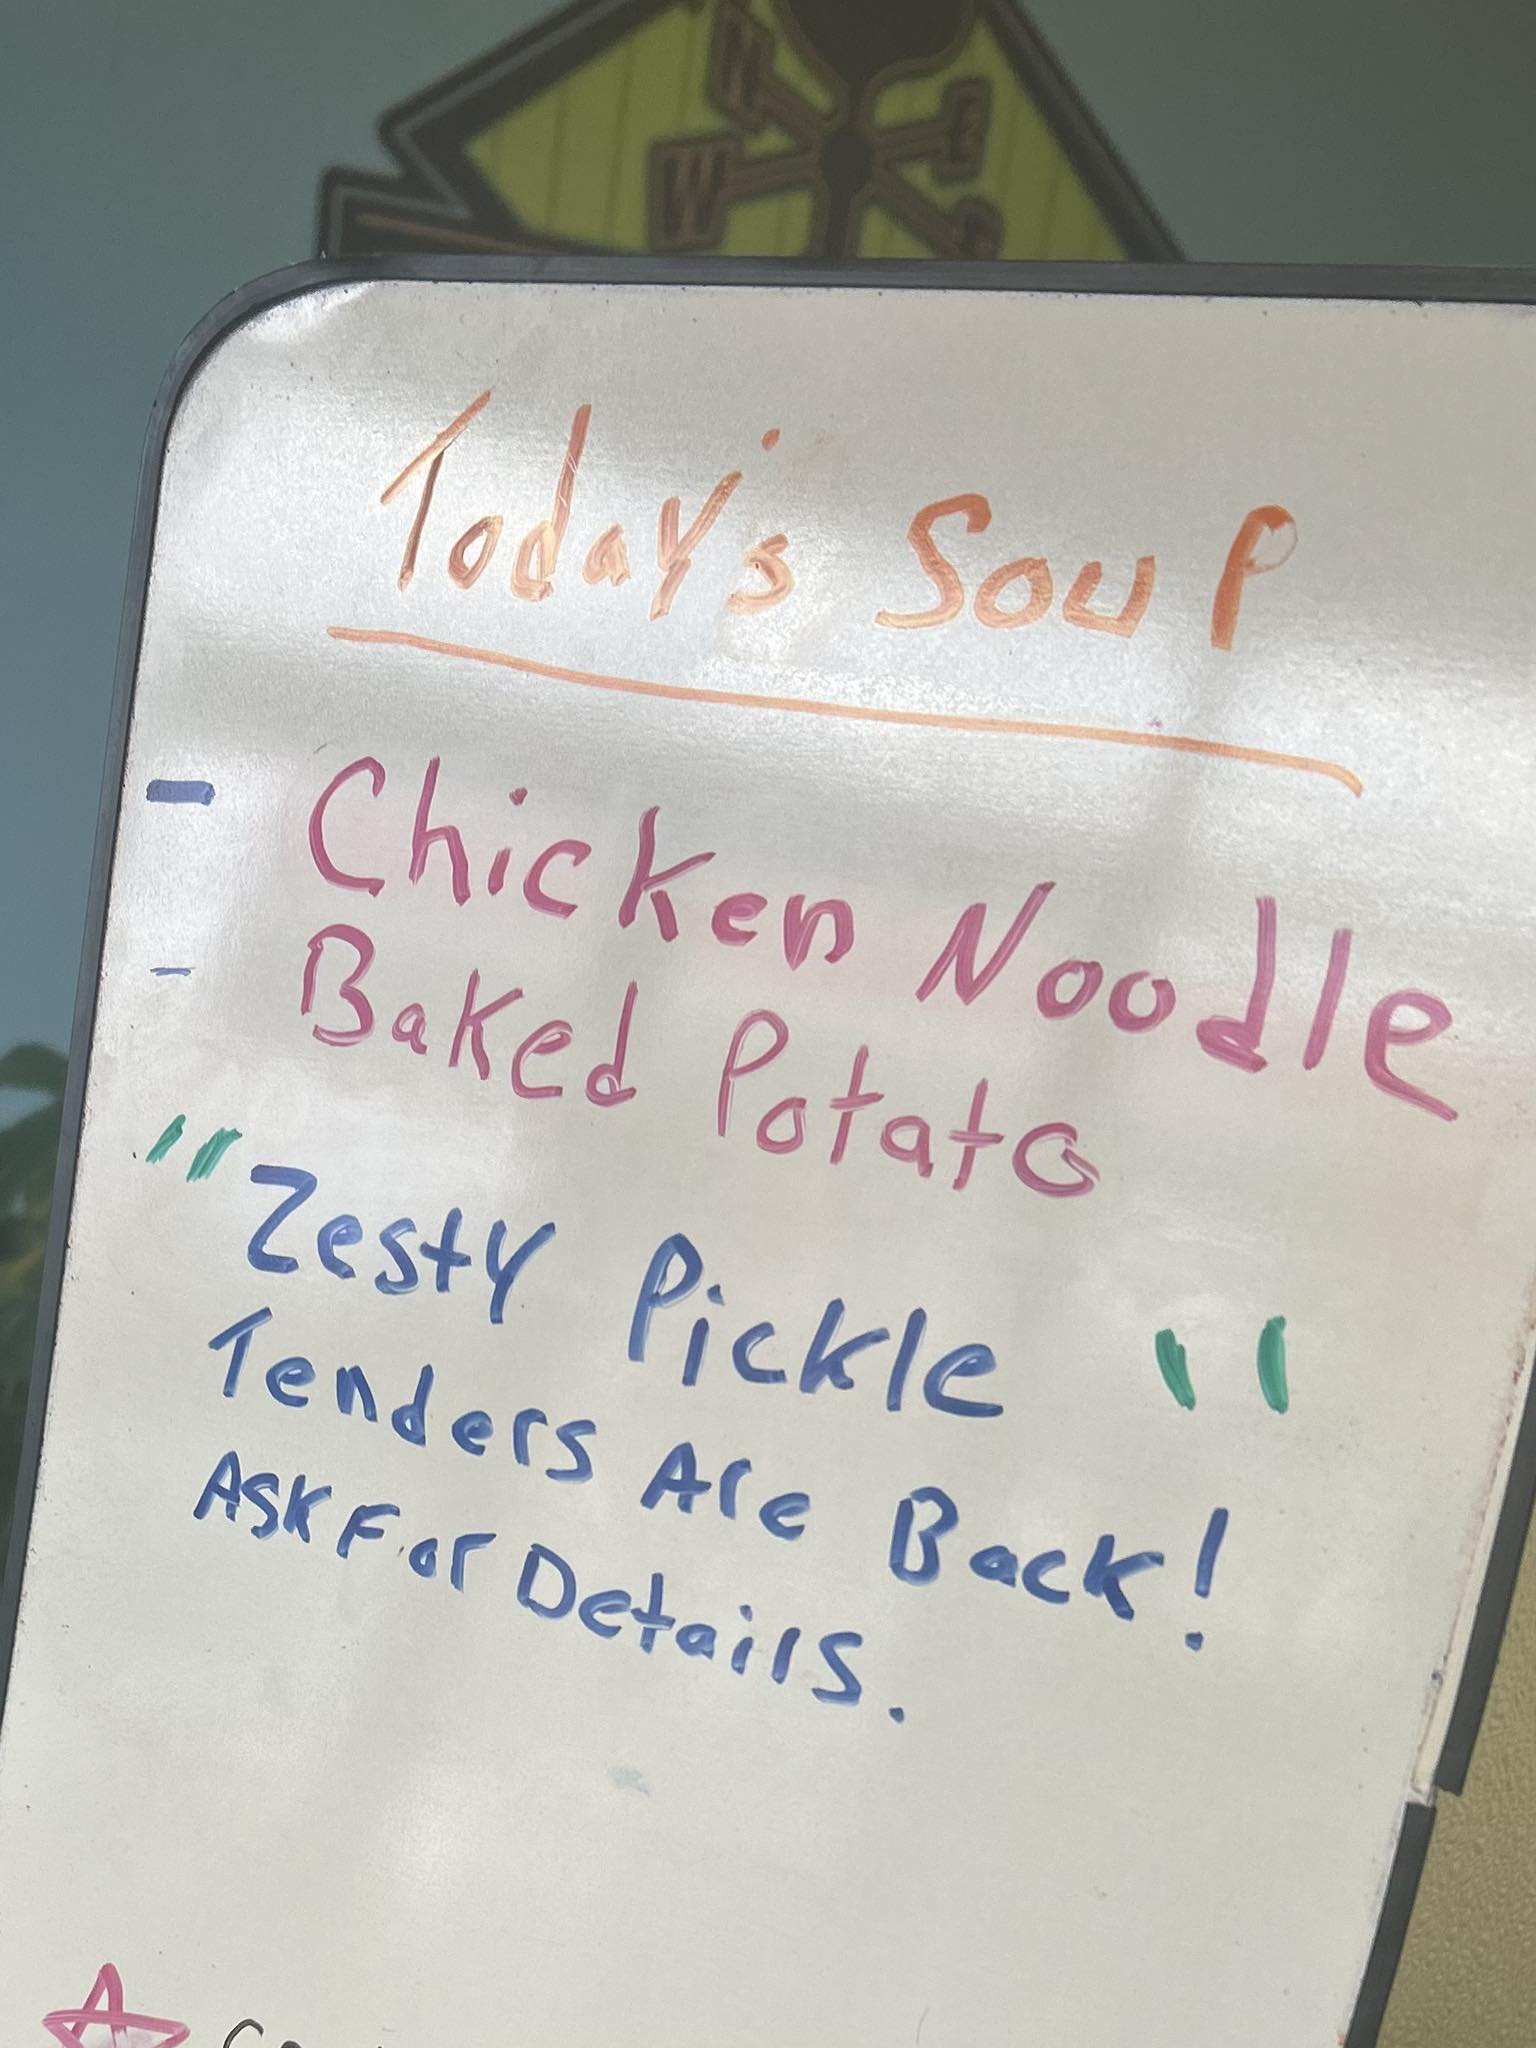 Today's Soup
- Chicken Noodle
- Baked Potato
"Zesty Pickle"
Tenders Are Back!
Ask For Details.